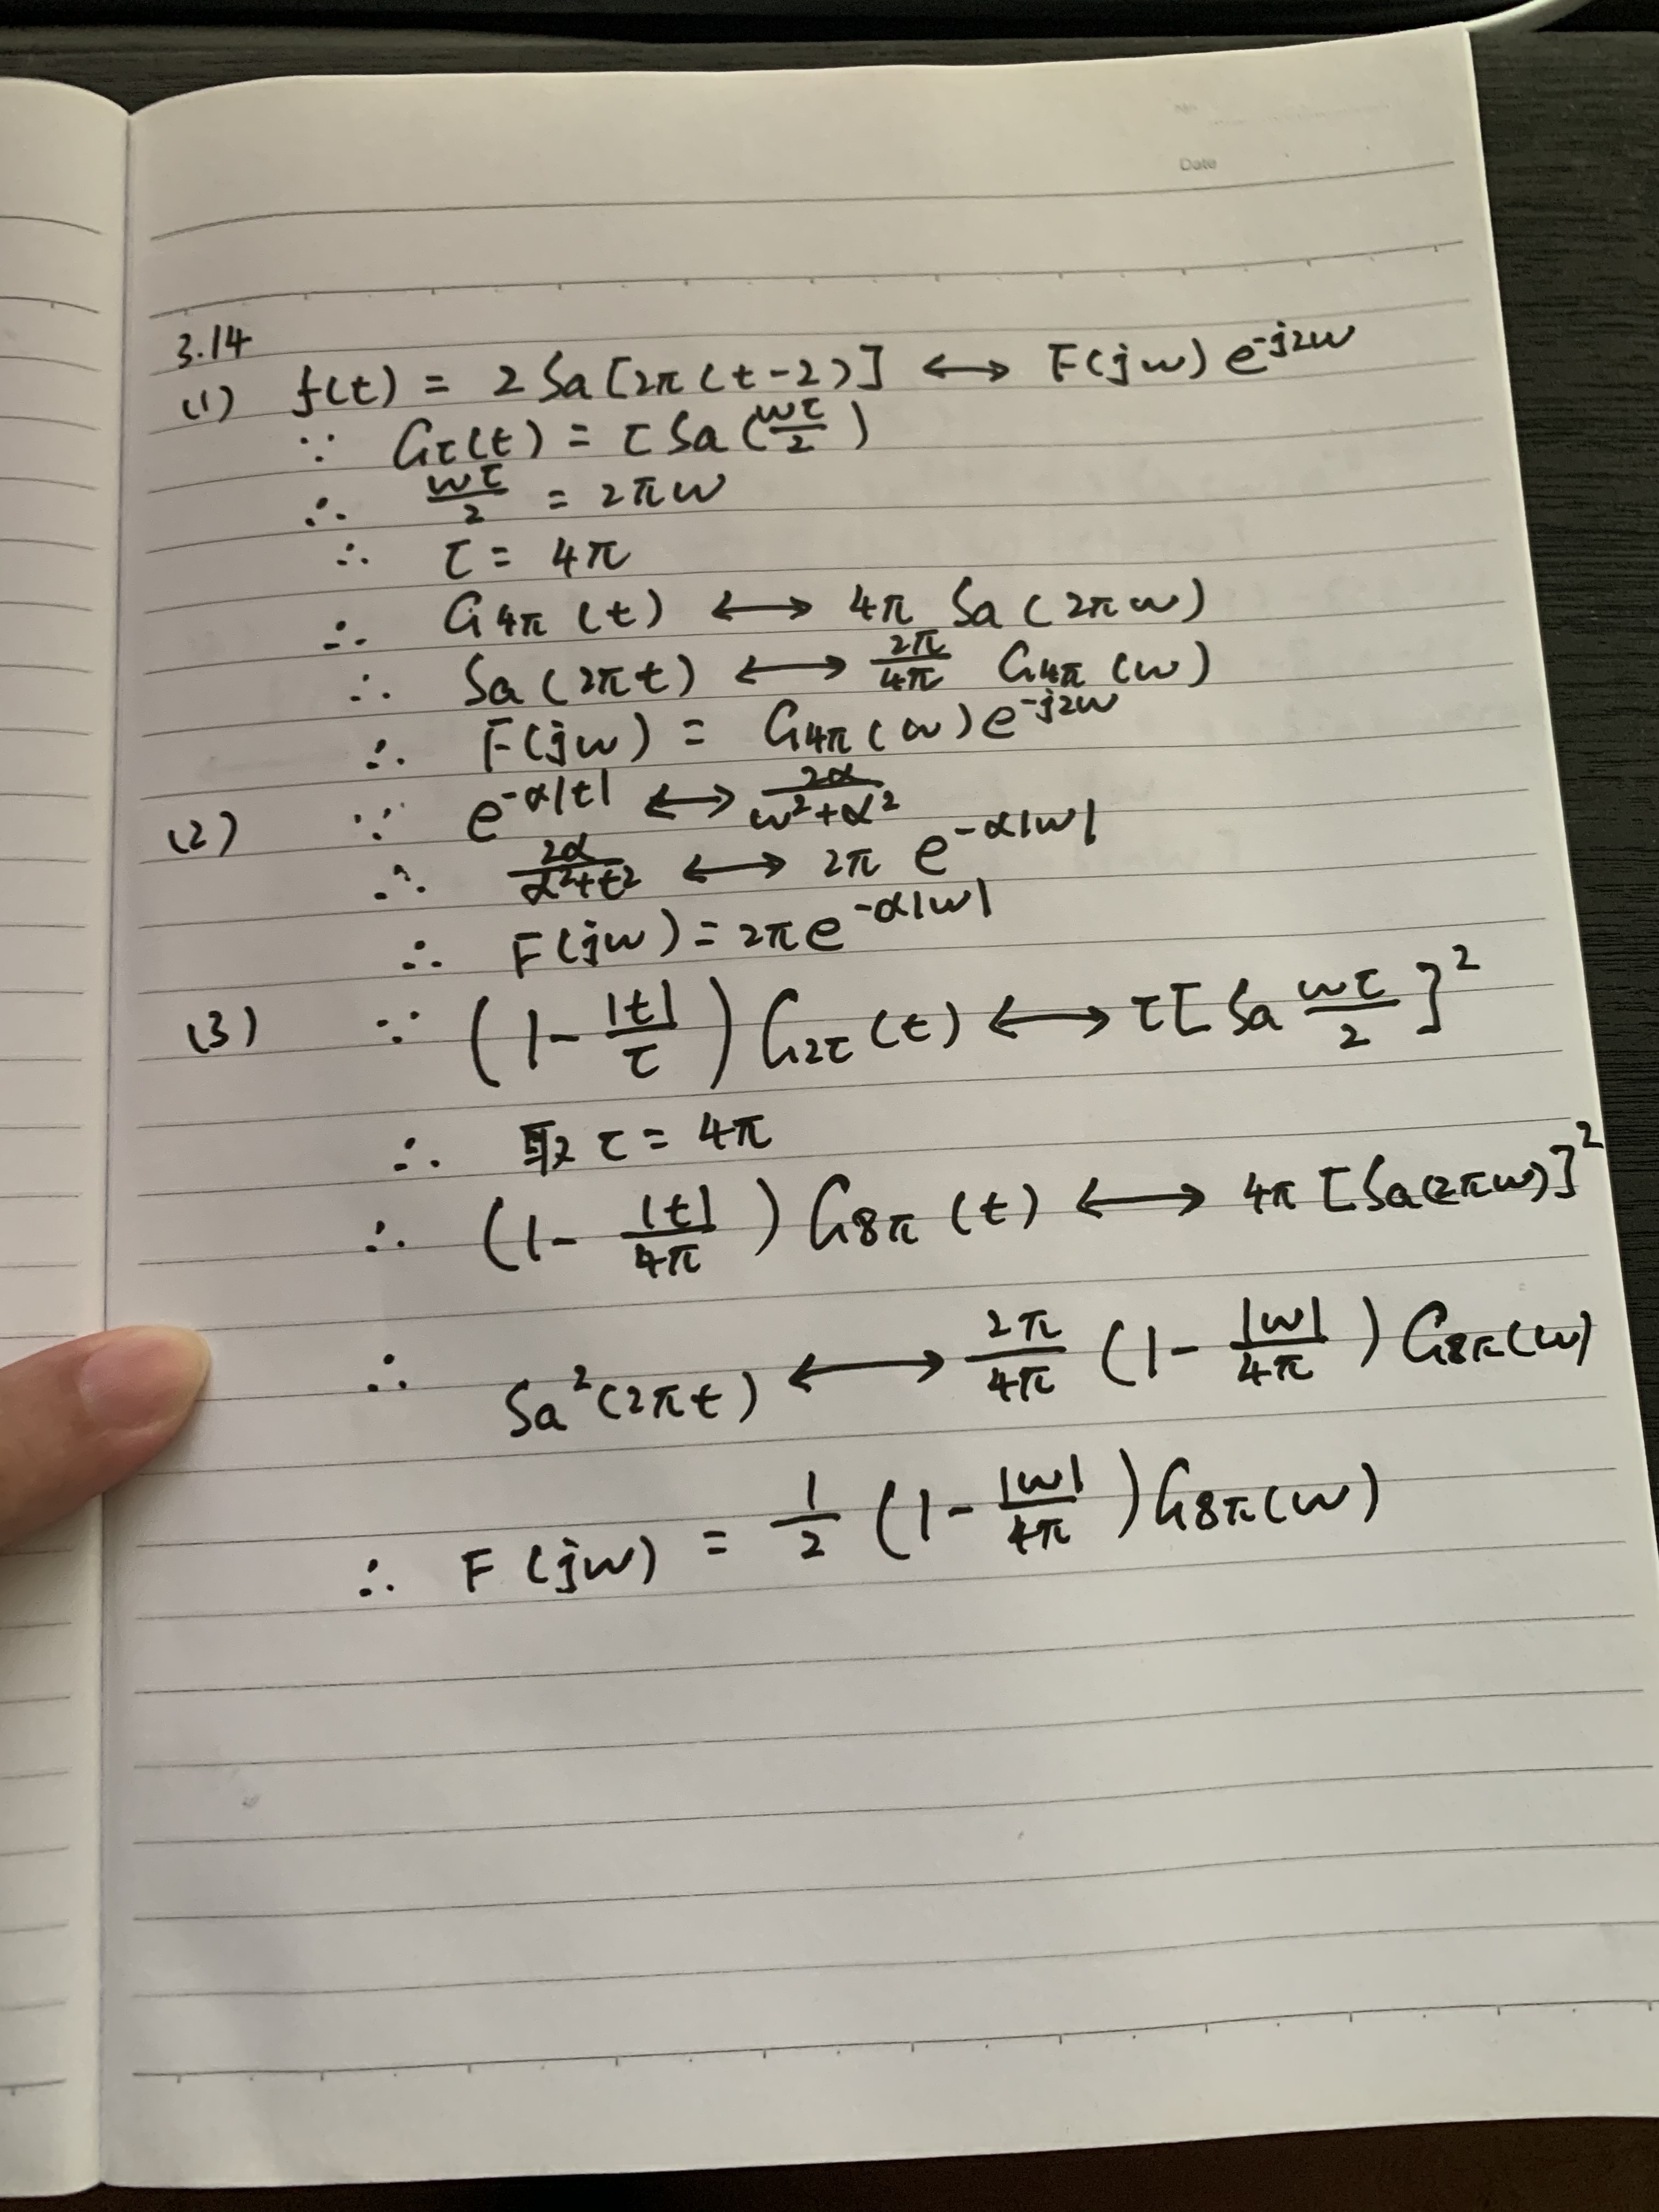 Date
3.14
(1) f(t) = 2Sa[2π(t-2)] ⟷ F(jw)e^{-j2w}
∵ G_τ(t) = τSa(wτ/2)
∴ wτ/2 = 2πw
∴ τ = 4π
∴ G_{4π}(t) ⟷ 4π Sa(2πw)
∴ Sa(2πt) ⟷ 2π/4π G_{4π}(w)
∴ F(jw) = G_{4π}(w)e^{-j2w}
(2) ∵ e^{-α|t|} ⟷ 2α/(w²+α²)
∴ 2α/(α²+t²) ⟷ 2π e^{-α|w|}
∴ F(jw) = 2πe^{-α|w|}
(3) ∵ (1-|t|/τ)G_{2τ}(t) ⟷ τ[Sa wτ/2]²
∴ 取τ = 4π
∴ (1-|t|/4π)G_{8π}(t) ⟷ 4π[Sa(2πw)]²
∴ Sa²(2πt) ⟷ 2π/4π (1-|w|/4π)G_{8π}(w)
∴ F(jw) = 1/2 (1-|w|/4π)G_{8π}(w)